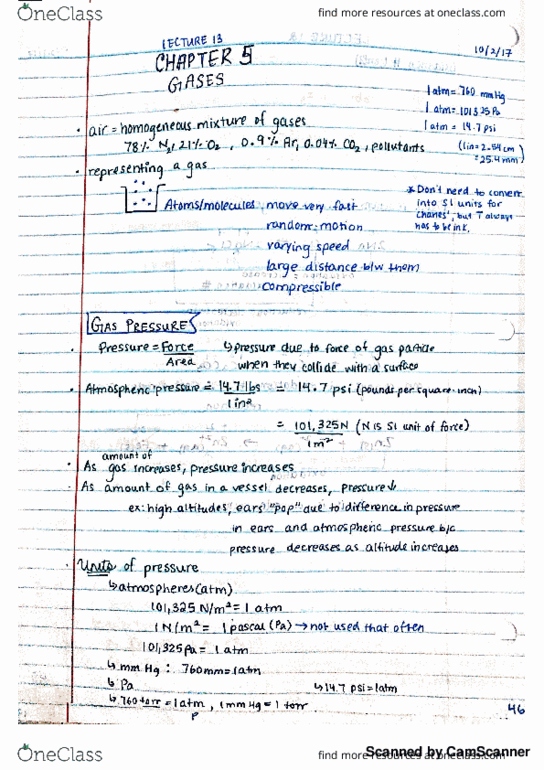 OneClass
find more resources at oneclass.com
LECTURE 13
10/2/17
CHAPTER 5
GASES
1 atm = 760 mmHg
1 atm = 101325 Pa
1 atm = 14.7 psi
(1in = 2.54 cm
= 25.4 mm)
• air = homogeneous mixture of gases
78% N₂, 21% O₂, 0.9% Ar, 0.04% CO₂, pollutants
• representing a gas
* Don't need to convert
into SI units for
"changes", but T always
has to be in K.
Atoms/molecules move very fast
random motion
varying speed
large distance b/w them
compressible
GAS PRESSURE
• Pressure = Force ↳ pressure due to force of gas particle
Area when they collide with a surface
• Atmospheric pressure = 14.7 lbs = 14.7 psi (pounds per square inch)
1 in²
= 101,325N (N is SI unit of force)
1m²
amount of
• As gas increases, pressure increases
• As amount of gas in a vessel decreases, pressure ↓
ex: high altitudes, ears "pop" due to difference in pressure
in ears and atmospheric pressure b/c
pressure decreases as altitude increases
• Units of pressure
↳ atmospheres (atm)
101,325 N/m² = 1 atm
1 N/m² = 1 pascal (Pa) → not used that often
101,325 Pa = 1 atm
↳ mm Hg : 760mm = 1atm
↳ Pa ↳ 14.7 psi = 1atm
↳ 760 torr = 1 atm, 1 mm Hg = 1 torr
P
46
Scanned by CamScanner
OneClass
find more resources at oneclass.com